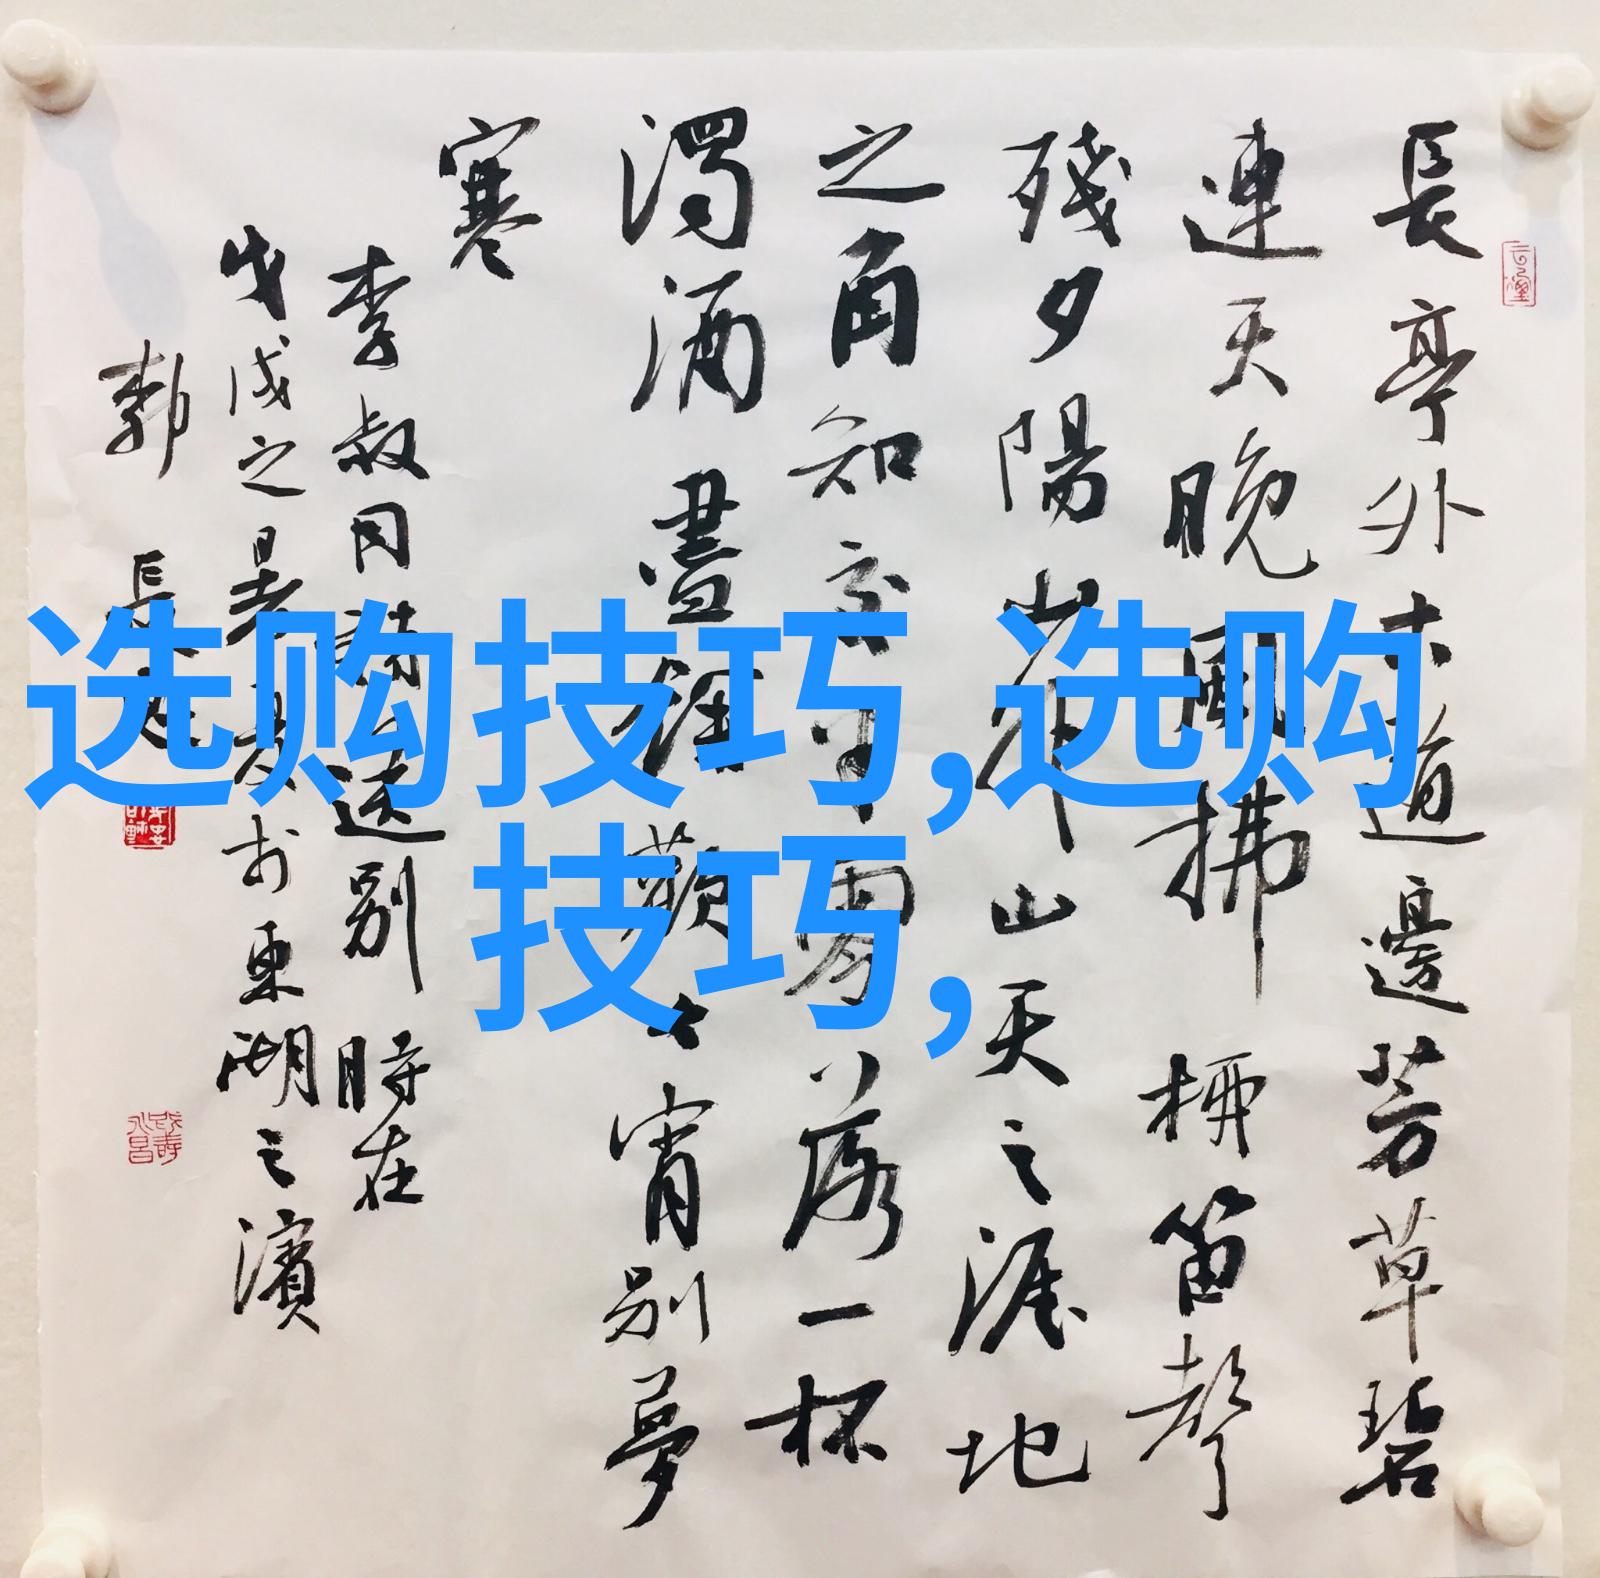 选购技巧,选购
技巧,
長亭外古道邊芳草碧
連天晚風拂柳笛聲
殘夕陽山外山天之涯地
之角知交半零落一杯
濁酒盡餘歡今宵別夢
寒
李叔同詩送別 時在
戊戌之暑夏於東湖之濱